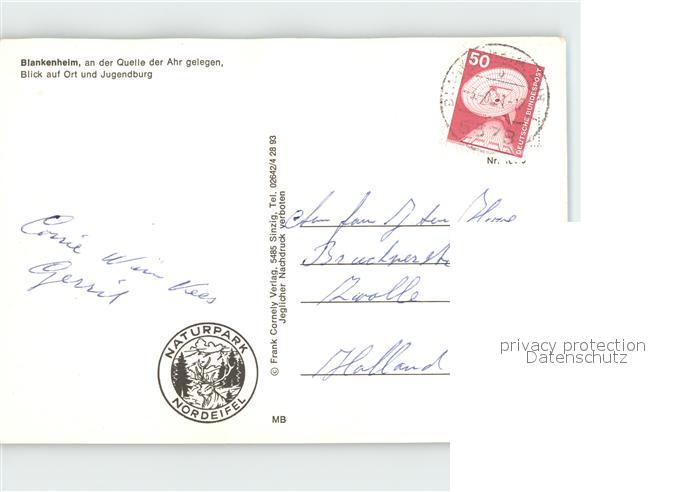 Blankenheim, an der Quelle der Ahr gelegen,
Blick auf Ort und Jugendburg
50
DEUTSCHE BUNDESPOST
5378
Nr.
© Frank Cornely Verlag, 5485 Sinzig, Tel. 02642/4 28 93
Jeglicher Nachdruck verboten
Corrie Wim Kees
Gerrit
Aan fam
Zwolle
Holland
NATURPARK
NORDEIFEL
MB
privacy protection
Datenschutz